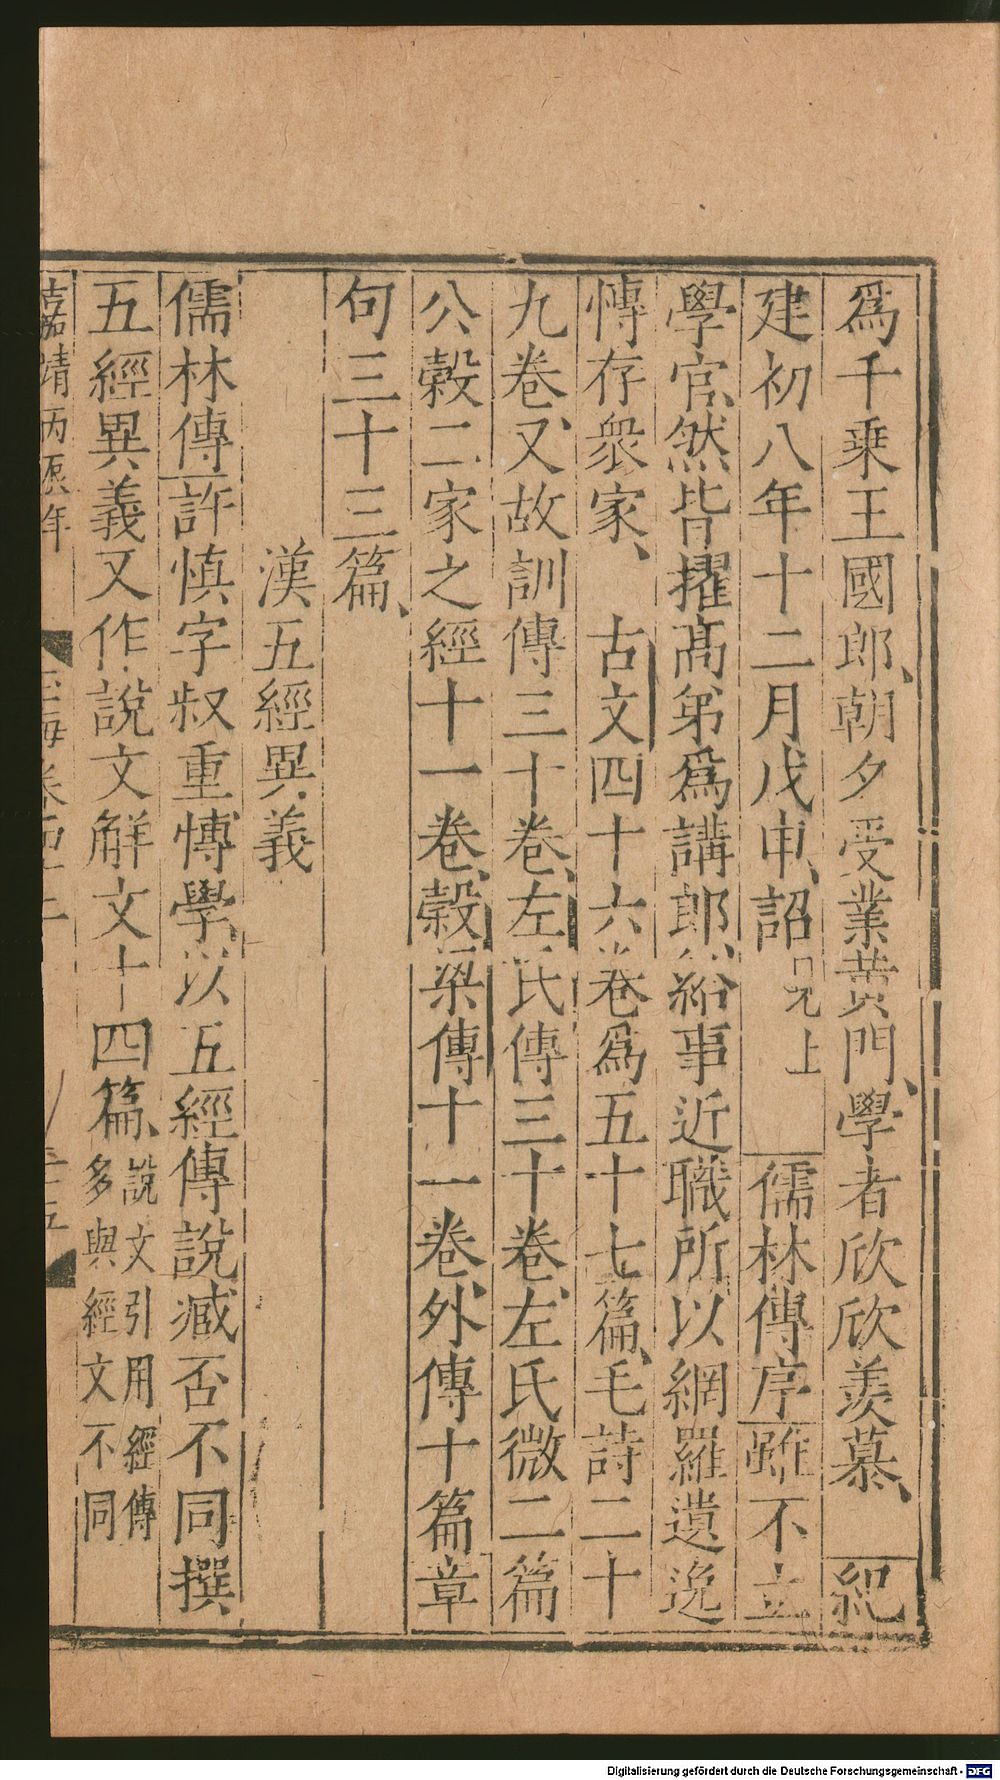 爲千乗王國郎朝夕受業黄門學者欣欣羨慕紀
建初八年十二月戊申詔見上儒林傳序雖不立
學官然皆擢髙第爲講郎給事近職所以網羅遺逸
愽存衆家古文四十六卷爲五十七篇毛詩二十
九卷又故訓傳三十卷左氏傳三十卷左氏微二篇
公穀二家之經十一卷穀梁傳十一卷外傳十篇章
句三十三篇
漢五經異義
儒林傳許慎字叔重愽學以五經傳說臧否不同撰
五經異義又作說文解文十四篇說文引用經傳
多與經文不同
嘉靖丙辰年 玉海卷四十二 三十五
Digitalisierung gefördert durch die Deutsche Forschungsgemeinschaft - DFG